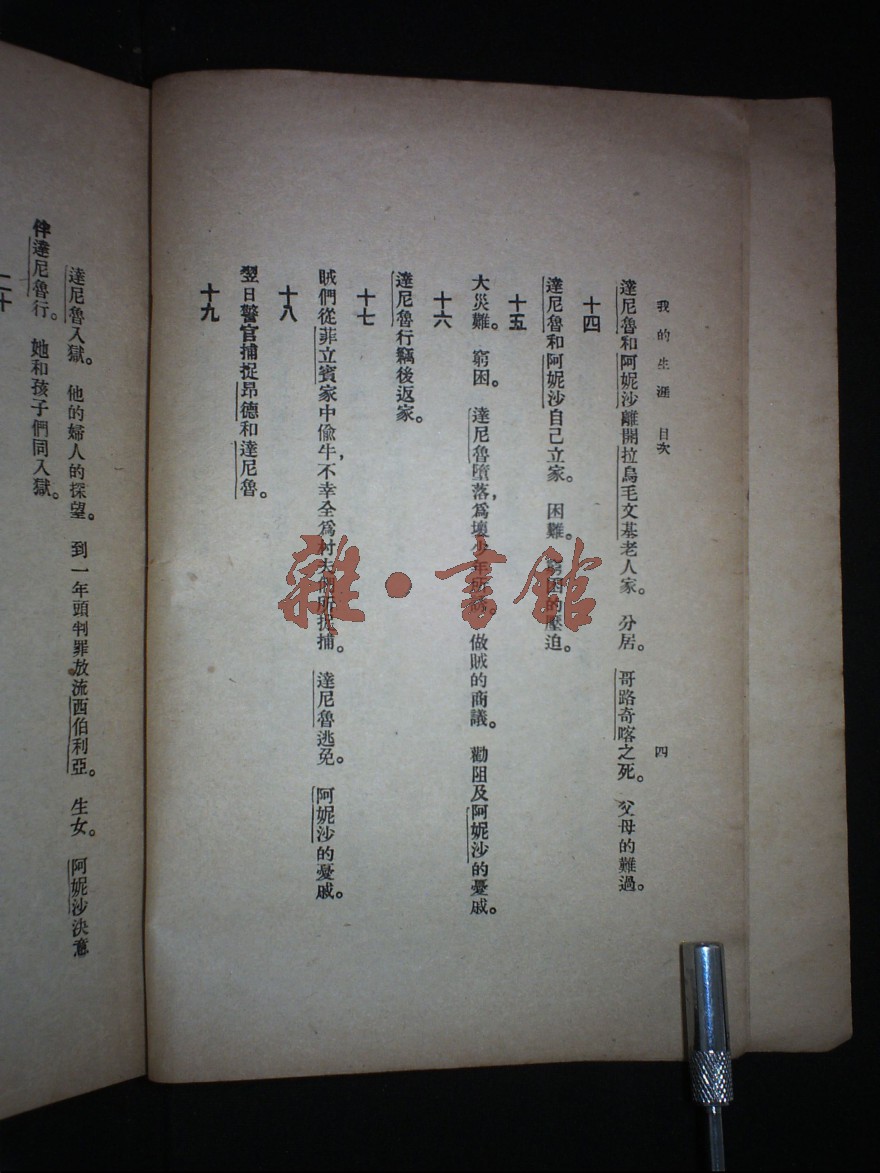 我的生涯 目次
四
達尼魯和阿妮沙離開拉烏毛文基老人家。 分居。 哥路奇喀之死。 父母的難過。
十四
達尼魯和阿妮沙自己立家。 困難。 窮困的壓迫。
十五
大災難。 窮困。 達尼魯墮落,爲壞少年所誘。 做賊的商議。 勸阻及阿妮沙的憂戚。
十六
達尼魯行竊後返家。
十七
賊們從菲立賓家中偷牛,不幸全爲村夫們所捉捕。 達尼魯逃免。 阿妮沙的憂戚。
十八
翌日警官捕捉昂德和達尼魯。
十九
達尼魯入獄。 他的婦人的探望。 到一年頭判罪放流西伯利亞。 生女。 阿妮沙決意
伴達尼魯行。 她和孩子們同入獄。
二十
雜·書館